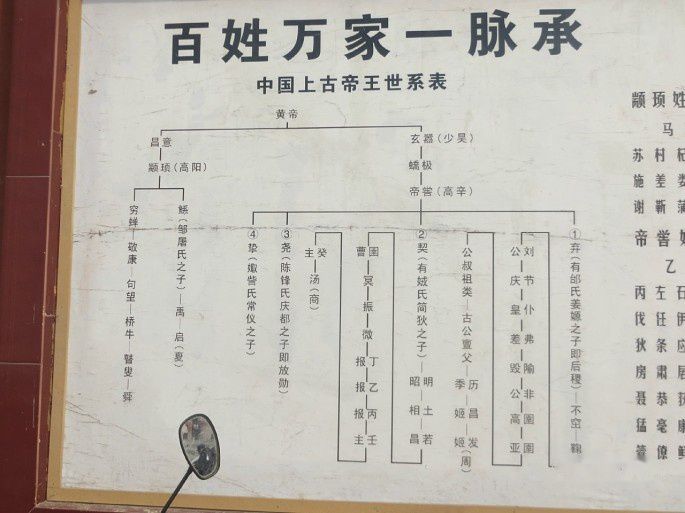 百姓万家一脉承
中国上古帝王世系表
黄帝
昌意
玄嚣(少昊)
颛顼(高阳)
蟜极
帝喾(高辛)
穷蝉—敬康—句望—桥牛—瞽叟—舜
鲧(邹屠氏之子)—禹—启(夏)
④挚(娵訾氏常仪之子)
③尧(陈锋氏庆都之子即放勋)
主癸
汤(商)
曹圉
冥—振—微
报丁
报乙
报丙
主壬
②契(有娀氏简狄之子)
昭明
相土
昌若
公叔祖类—古公亶父
季历
姬昌
姬发(周)
公刘
庆节
皇仆
差弗
毁隃
公非
高圉
亚圉
①弃(有邰氏姜嫄之子即后稷)—不窋—鞠
颛顼姓
马
苏 村 杞
施 差 娄
谢 靳 蒲
帝喾姓
乙
丙 左 石
伐 任 伊
狄 条 应
房 肃 居
聂 恭
猛 毫 康
管 僚